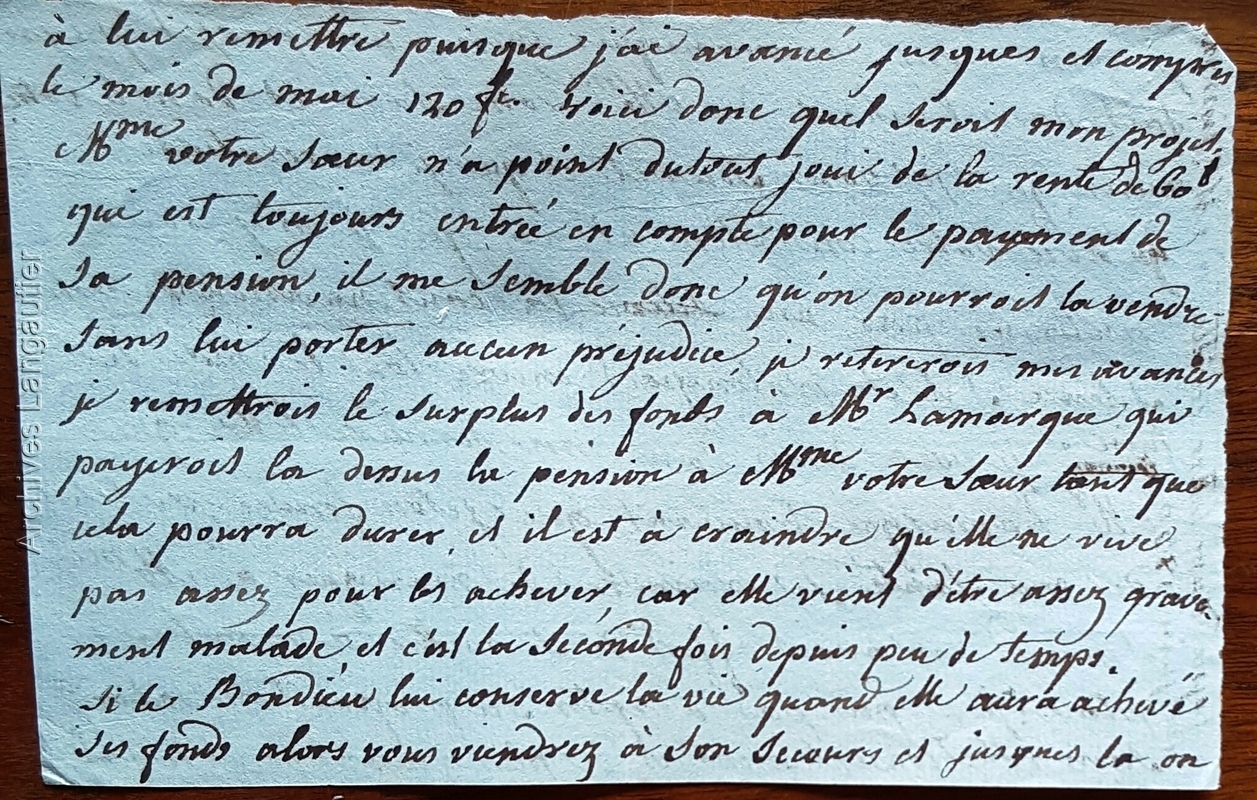 à lui remettre puisque j'ai avancé jusques et compris
le mois de mai 120 fr. voici donc quel seroit mon projet.
Mme votre sœur n'a point dutout joui de la rente de 60 f
qui est toujours entrée en compte pour le payement de
sa pension, il me semble donc qu'on pourroit la vendre
sans lui porter aucun préjudice, je retirerois mes avances
je remettrois le surplus des fonds à Mr Lamarque qui
payeroit la dessus la pension à Mme votre sœur tant que
cela pourra durer, et il est à craindre qu'elle ne vive
pas assez pour les achever, car elle vient d'être assez grave-
ment malade, et c'est la séconde fois depuis peu de temps.
si le Bondieu lui conserve la vie quand elle aura achevé
ses fonds alors vous viendrez à son secours et jusques la on
Archives Langautier